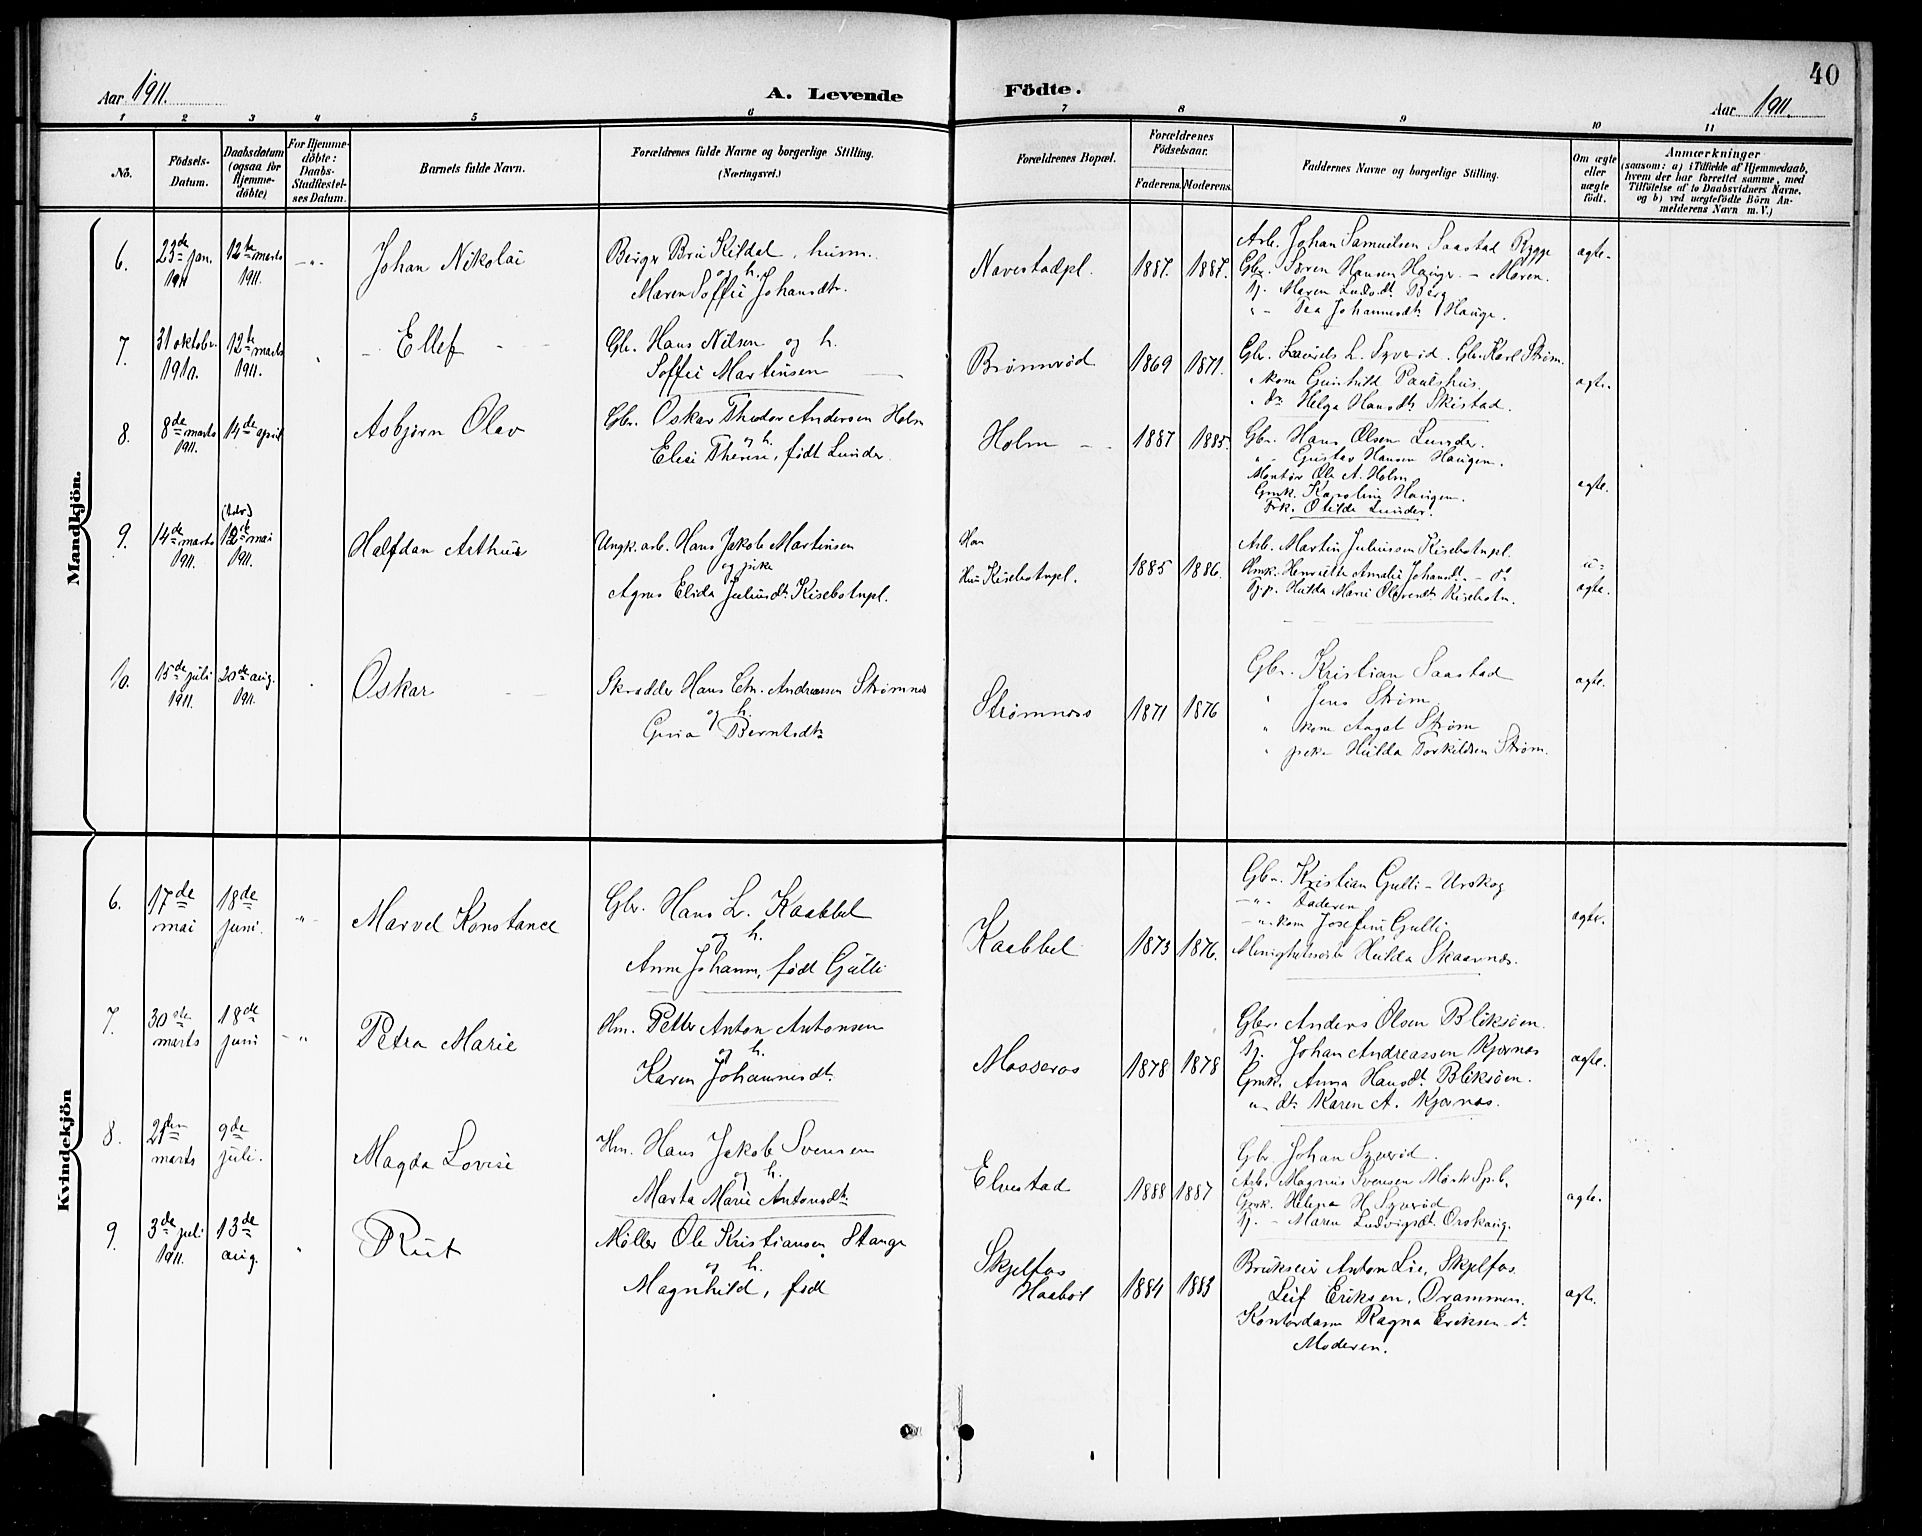 40
Aar 1911. A. Levende Fødte. Aar 1911.
1 2 3 4 5 6 7 8 9 10 11
No. Födsels-Datum. Daabsdatum (ogsaa for Hjemmedöbte) For Hjemmedöbte: Daabs-Stadfæstelses Datum. Barnets fulde Navn. Forældrenes fulde Navne og borgerlige Stilling. (Næringsvei.) Forældrenes Bopæl. Forældrenes Födselsaar. Faderens. Moderens. Faddernes Navne og borgerlige Stilling. Om ægte eller uægte födt. Anmærkninger (saasom: a) i Tilfælde af Hjemmedaab, hvem der har forrettet samme, med Tilföielse af to Daabsvidners Navne, og b) ved uægtefödte Börn Anmelderens Navn m. V.)
Mandkjön.
6. 23de jan. 1911 12te marts 1911. -"- Johan Nikolai
Berger Kildal, husm. og h.
Maren Soffie Johansdtr.
Navestadpl. 1887. 1887.
Arb. Johan Samuelsen Saastad Rygge
Gbr. Søren Hansen Hauger - Maren.
Tj. Maren Ludvdt. Berg
"- Tea Johannesdtr Hauge.
ægte.
7. 31 oktobr. 1910. 12te marts 1911. " Ellef
Gbr. Hans Nilsen og h.
Soffie Martinsen
Brønnrød 1869 1871.
Gbr. Laurets L. Syverød. Gbr. Karl Strøm.
" kone Gunhild Paulshus.
" dtr Helga Hansdtr Skistad.
ægte.
8. 8de marts 1911. 14de april Asbjørn Olav
Gbr. Oskar Thodor Andersen Holm
og h.
Elise Therese, født Lunder.
Holm - 1887 1885.
Gbr. Hans Olsen Lunder.
" - Gustav Hansen Haugen.
Montør Ole A. Holm
Gmk. Karoline Haugen.
Frk. Otilde Lunder.
ægte.
9. 14de marts 1911. 12de mai 1911. Halfdan Arthur
Ungk. arb. Hans Jakob Martinsen
og pike
Agnes Elida Juliusdt. Kisebotnpl.
Han
Hun Kisebotnpl. 1885 1886.
Arb. Martin Juliussen Kisebotnpl.
Hmk. Henriette Amalie Johansdt. - do
Tj.p. Hulda Marie Kisebotn.
u-ægte.
10. 15de juli 1911. 20de aug. 1911. Oskar
Skrædder Hans Chr. Andreassen Strømnes
og h.
Gina Berntsdtr
Strømness 1871 1876
Gbr. Kristian Saastad
" Jens Strøm
" kone Aagot Strøm
" pike Hulda Torkildsen Strøm.
ægte.
Kvindekjön
6. 17de mai 18de juni. "- Marvel Konstance
Gbr. Hans L. Kaabbel
og h.
Anne Johanne, født Gulli
Kaabbel 1873 1876.
Gbr. Kristian Gulli - Urskog
-"- Faderen
-"- kone Josefine Gulli
Menighetssøster Hulda Skaarnæs.
ægte.
7. 30te marts 18de juni -" Petra Marie
Hm. Petter Anton Antonsen
og h.
Karen Johannesdt.
Mosseros 1878 1878
Gbr. Anders Olsen Bliksøen.
Tj. Johan Andreassen Kjærnæs
Gmk. Anna Hansdt. Bliksøen.
"- dtr Karen A. Kjærnæs.
ægte.
8. 21de marts 9de juli. Magda Lovise
Hm. Hans Jakob Svensen
og h.
Marta Marie Antonsdtr
Elvestad 1888 1887
Gbr. Johan Syverød.
Arb. Magnus Svensen Mørk Spb.
Gmk. Helena H. Syverød
Tj. - Maren Ludvigsdt. Orskaug.
ægte.
9. 3de juli 1911. 13de aug. " Rut
Møller Ole Kristiansen Stange
og h.
Magnhild, født
Skjelfos
Haabøl 1884 1883
Brukseier Anton Lie, Skjelfos.
Leif Eriksen, Drammen.
Kontordame Ragna Eriksen do
Moderen.
ægte.